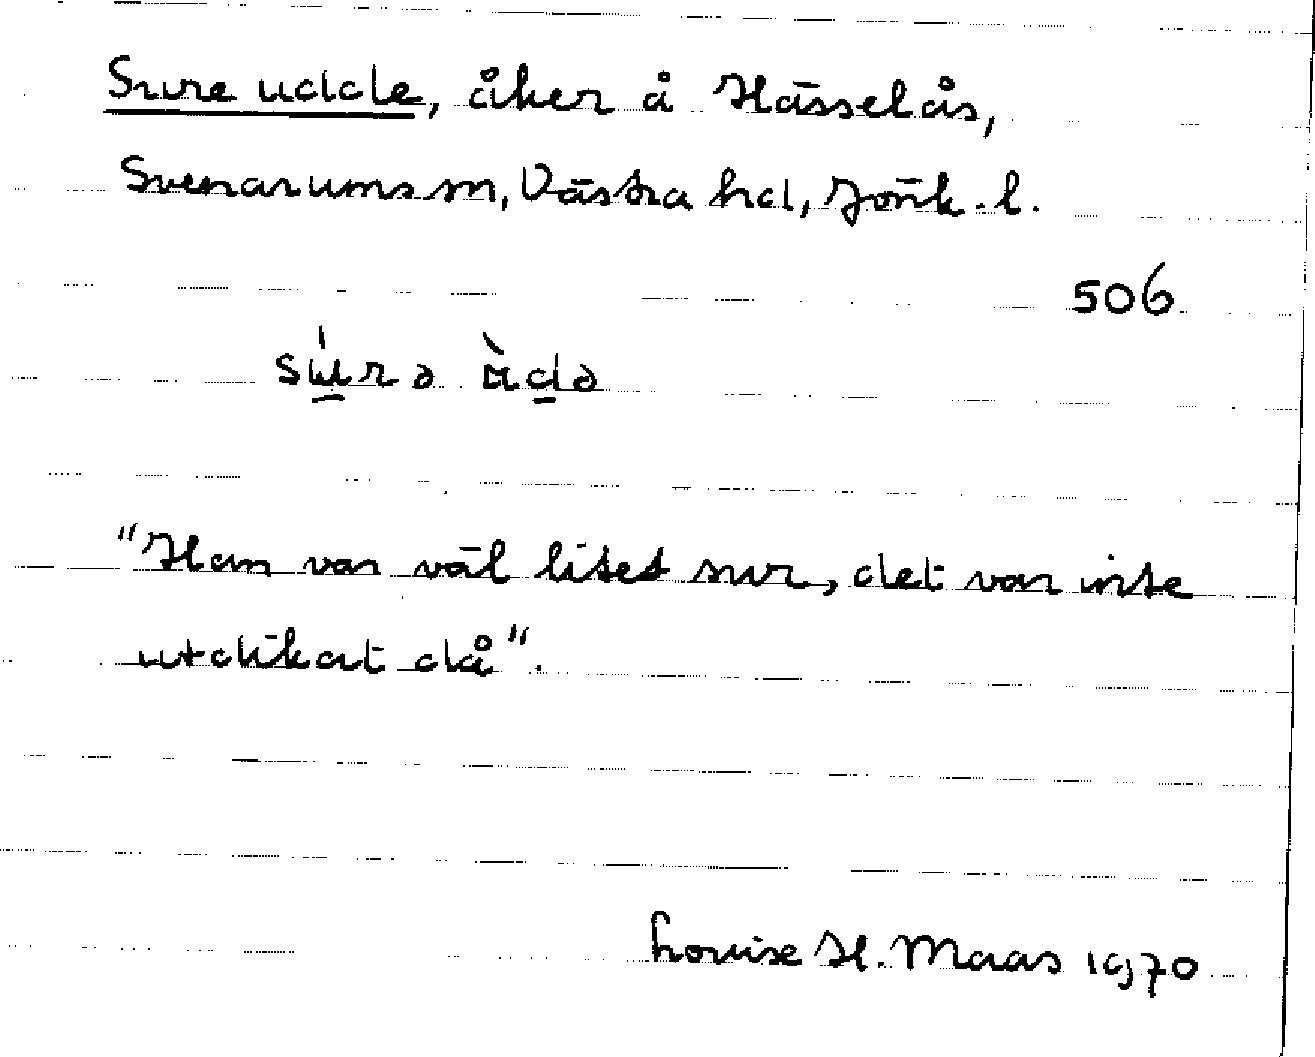 Sure udde, åker å Hässelås,
Svenarums sn, Västra hd, Jönk. l.
506
"Han var väl litet sur, det var inte
utdikat då".
Louise H. Maas 1970